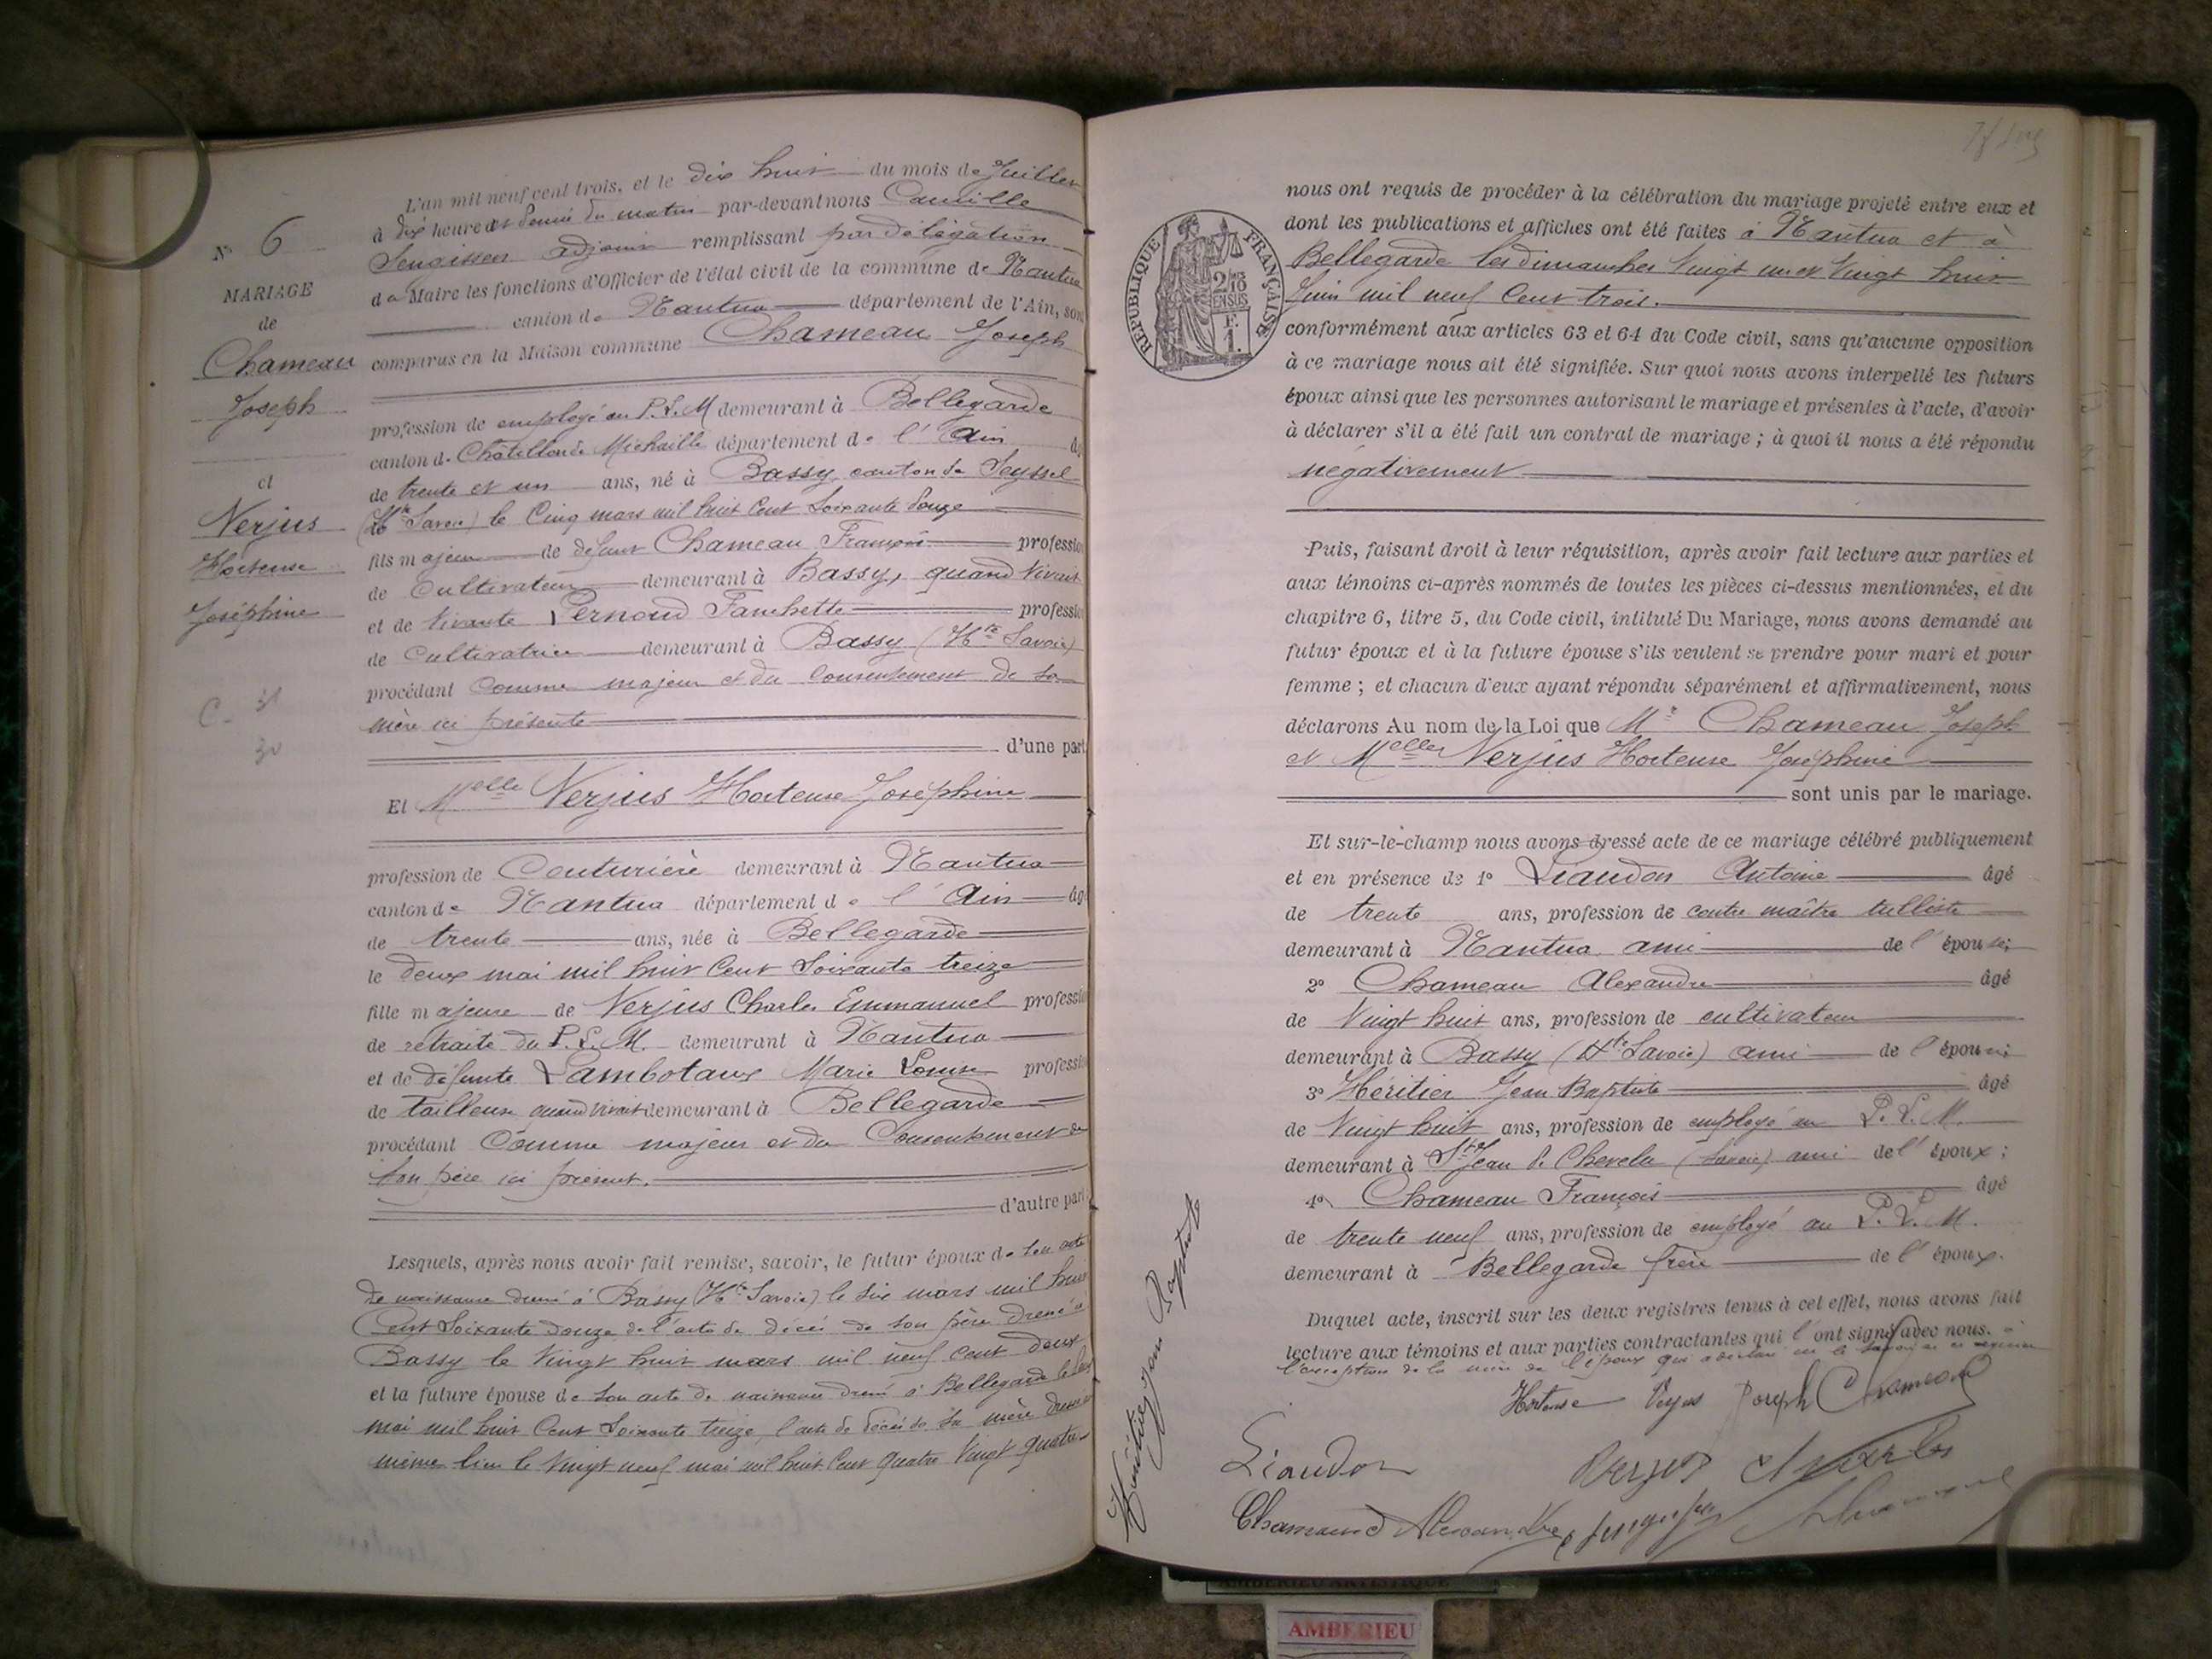 L'an mil neuf cent trois, et le dix huit du mois de Juillet
à dix heures et demie du matin par-devant nous Camille
adjoint remplissant par délégation
de Maire les fonctions d'Officier de l'état civil de la commune de Nantua
canton de Nantua département de l'Ain, sont
comparus en la Maison commune Chameau Joseph
profession de employé au P.L.M demeurant à Bellegarde
canton de Châtillon de Michaille département de l'Ain âgé
de trente et un ans, né à Bassy canton de Seyssel
(Hte Savoie) le Cinq mars mil huit Cent Soixante douze
fils majeur de défunt Chameau François profession
de Cultivateur demeurant à Bassy, quand vivait
et de vivante Pernoud Fanchette profession
de Cultivatrice demeurant à Bassy (Hte Savoie)
procédant Comme majeur et du Consentement de sa
mère ici présente
d'une part
Et Melle Verjus Hortense Joséphine
profession de Couturière demeurant à Nantua
canton de Nantua département de l'Ain âgé
de trente ans, née à Bellegarde
le deux mai mil huit Cent Soixante treize
fille majeure de Verjus Charles Emmanuel profession
de retraité du P.L.M. demeurant à Nantua
et de défunte Lambotaux Marie Louise profession
de tailleuse quand vivait demeurant à Bellegarde
procédant Comme majeur et du Consentement de
son père ici présent.
d'autre part
Lesquels, après nous avoir fait remise, savoir, le futur époux de son acte
de naissance dressé à Bassy (Hte Savoie) le six mars mil huit
Cent Soixante douze de l'acte de décès de son père dressé à
Bassy le Vingt huit mars mil neuf Cent deux
et la future épouse de son acte de naissance dressé à Bellegarde le deux
mai mil huit Cent Soixante treize, l'acte de décès de sa mère dressé
même lieu le Vingt neuf mai mil huit Cent quatre Vingt quatre
N° 6
MARIAGE
de
Chameau
Joseph
et
Verjus
Hortense
Joséphine
C. 31
30
nous ont requis de procéder à la célébration du mariage projeté entre eux et
dont les publications et affiches ont été faites à Nantua et à
Bellegarde les dimanches Vingt un et Vingt huit
Juin mil neuf Cent trois.
conformément aux articles 63 et 64 du Code civil, sans qu'aucune opposition
à ce mariage nous ait été signifiée. Sur quoi nous avons interpellé les futurs
époux ainsi que les personnes autorisant le mariage et présentes à l'acte, d'avoir
à déclarer s'il a été fait un contrat de mariage ; à quoi il nous a été répondu
négativement
RÉPUBLIQUE FRANÇAISE
2/10
EN SUS
F.
1.
Puis, faisant droit à leur réquisition, après avoir fait lecture aux parties et
aux témoins ci-après nommés de toutes les pièces ci-dessus mentionnées, et du
chapitre 6, titre 5, du Code civil, intitulé Du Mariage, nous avons demandé au
futur époux et à la future épouse s'ils veulent se prendre pour mari et pour
femme ; et chacun d'eux ayant répondu séparément et affirmativement, nous
déclarons Au nom de la Loi que Mr Chameau Joseph
et Melle Verjus Hortense Joséphine
sont unis par le mariage.
Et sur-le-champ nous avons dressé acte de ce mariage célébré publiquement
et en présence de 1° Liaudon Antoine âgé
de trente ans, profession de contre maître tulliste
demeurant à Nantua ami de l'épouse;
2° Chameau Alexandre âgé
de Vingt huit ans, profession de cultivateur
demeurant à Bassy (Hte Savoie) ami de l'époux;
3° Héritier Jean Baptiste âgé
de Vingt huit ans, profession de employé au P.L.M.
demeurant à St Jean de Chevelu (Savoie) ami de l'époux ;
4° Chameau François âgé
de trente neuf ans, profession de employé au P.L.M.
demeurant à Bellegarde frère de l'époux.
Duquel acte, inscrit sur les deux registres tenus à cet effet, nous avons fait
lecture aux témoins et aux parties contractantes qui l'ont signé avec nous. à
l'exception de la mère de l'époux qui a déclaré ne le savoir de ce requise
Hortense Verjus Joseph Chameau
Liaudon Verjus Charles
Chamaund Alexandre
Héritier Jean Baptiste
AMBERIEU ARTISTIQUE
AMBERIEU